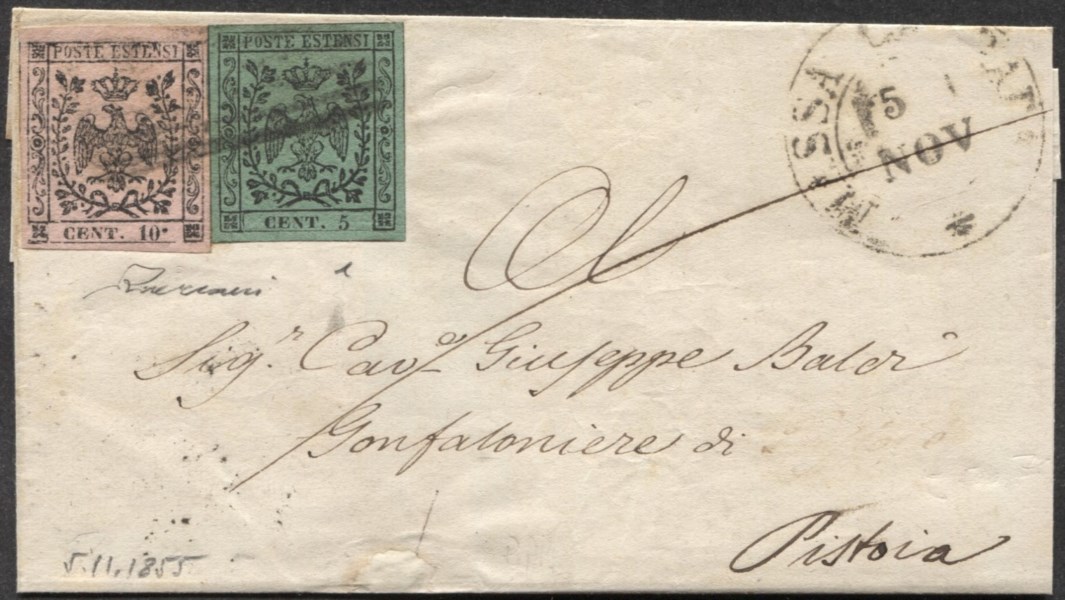 POSTE ESTENSI
CENT. 10.
POSTE ESTENSI
CENT. 5
MASSA CARRARA
5
NOV
Al
Sigr. Cavo. Giuseppe Baldi
Gonfaloniere di
Pistoia
5.11.1855